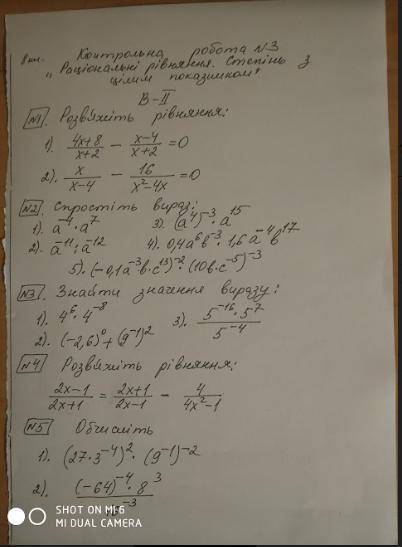 8 кл. Контрольна робота N3
"Раціональні рівняння. Степінь з
цілим показником"
В-II
N1. Розв'яжіть рівняння:
1). (4x+8)/(x+2) − (x−4)/(x+2) = 0
2). x/(x−4) − 16/(x²−4x) = 0
N2. Спростіть вираз:
1). a⁻⁴·a⁷ 3). (a⁴)⁻³·a¹⁵
2). a⁻¹¹:a⁻¹² 4). 0,4a⁶b⁻³·1,6a⁻⁴b¹⁷
5). (−0,1a⁻³b·c¹³)⁻²·(10b·c⁻⁵)⁻³
N3. Знайти значення виразу:
1). 4⁶·4⁻⁸ 3). (5⁻¹⁶·5⁷)/5⁻⁴
2). (−2,6)⁰+(9⁻¹)²
N4 Розв'яжіть рівняння:
(2x−1)/(2x+1) = (2x+1)/(2x−1) − 4/(4x²−1)
N5 Обчисліть
1). (27·3⁻⁴)²·(9⁻¹)⁻²
2). (−64)⁻⁴·8³
⁻³
SHOT ON MI 6
MI DUAL CAMERA